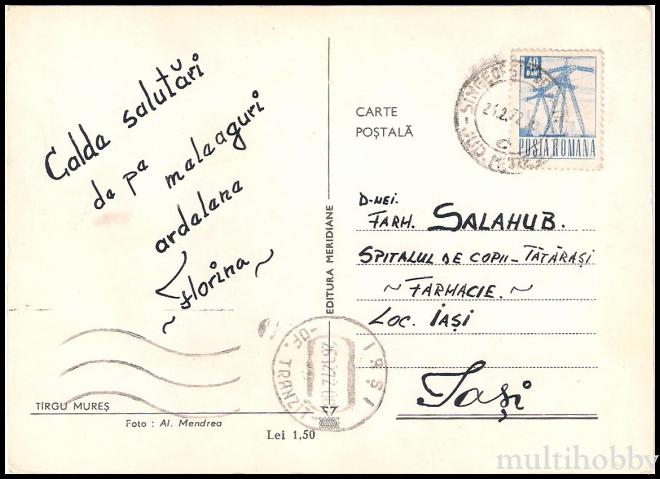 Calde salutări
de pe
meleaguri
ardelene
~ Florina ~
TÎRGU MUREȘ
Foto : Al. Mendrea
Lei 1,50
EDITURA MERIDIANE
CARTE
POȘTALĂ
60
POSTA ROMANA
21.2.72
IAȘI
OF. TRANZIT
D-NEI.
FARM. SALAHUB.
SPITALUL DE COPII - TĂTĂRAȘI
~ FARMACIE. ~
LOC. IAȘI
Iași
multihobby